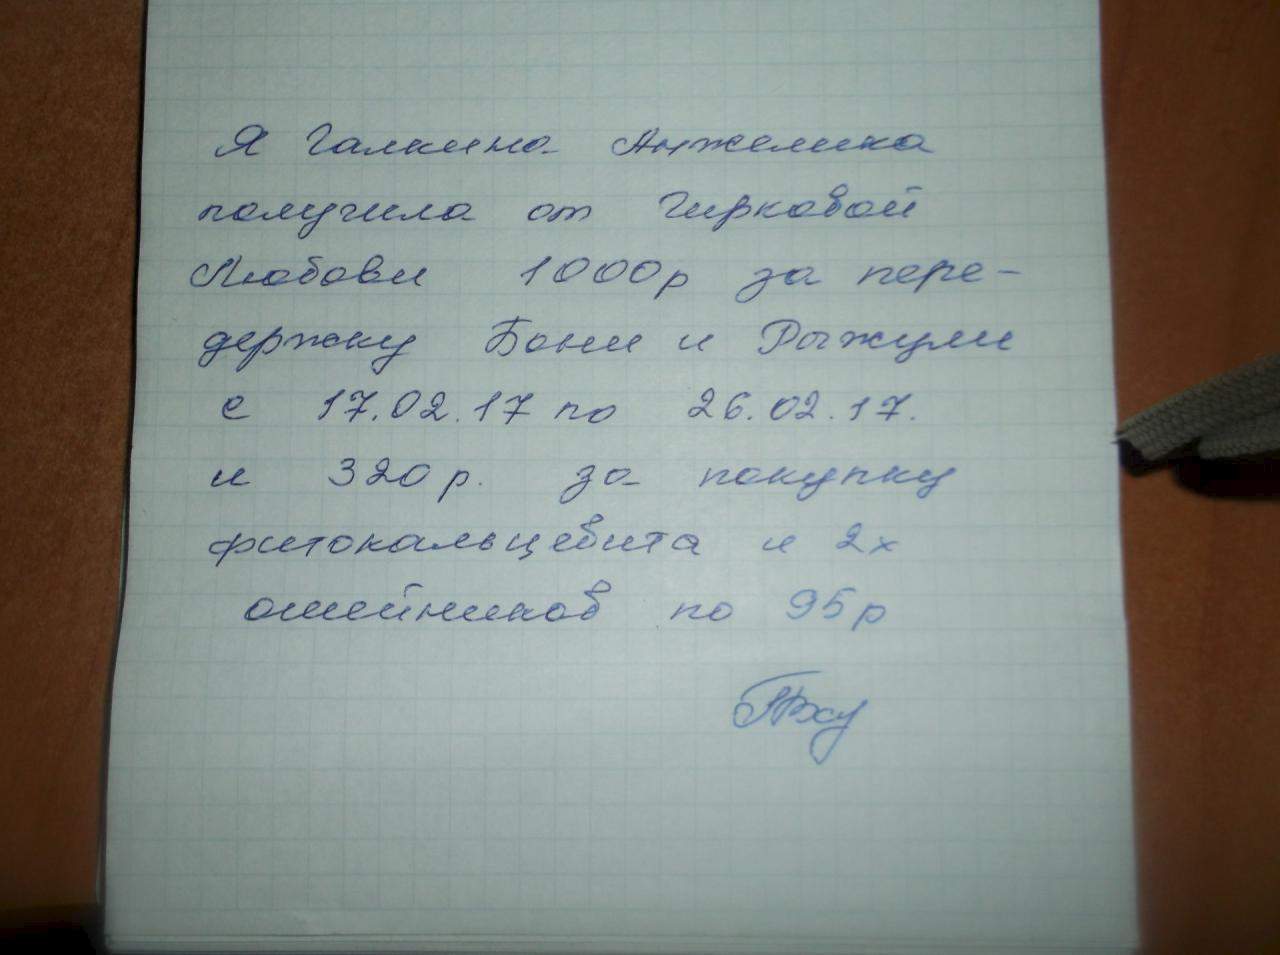 Я Галкина Анжелика
получила от Гирковой
Любови 1000р за пере-
держку Бони и Рыжули
с 17.02.17 по 26.02.17.
и 320р. за покупку
фитокальцевита и 2х
ошейников по 95р